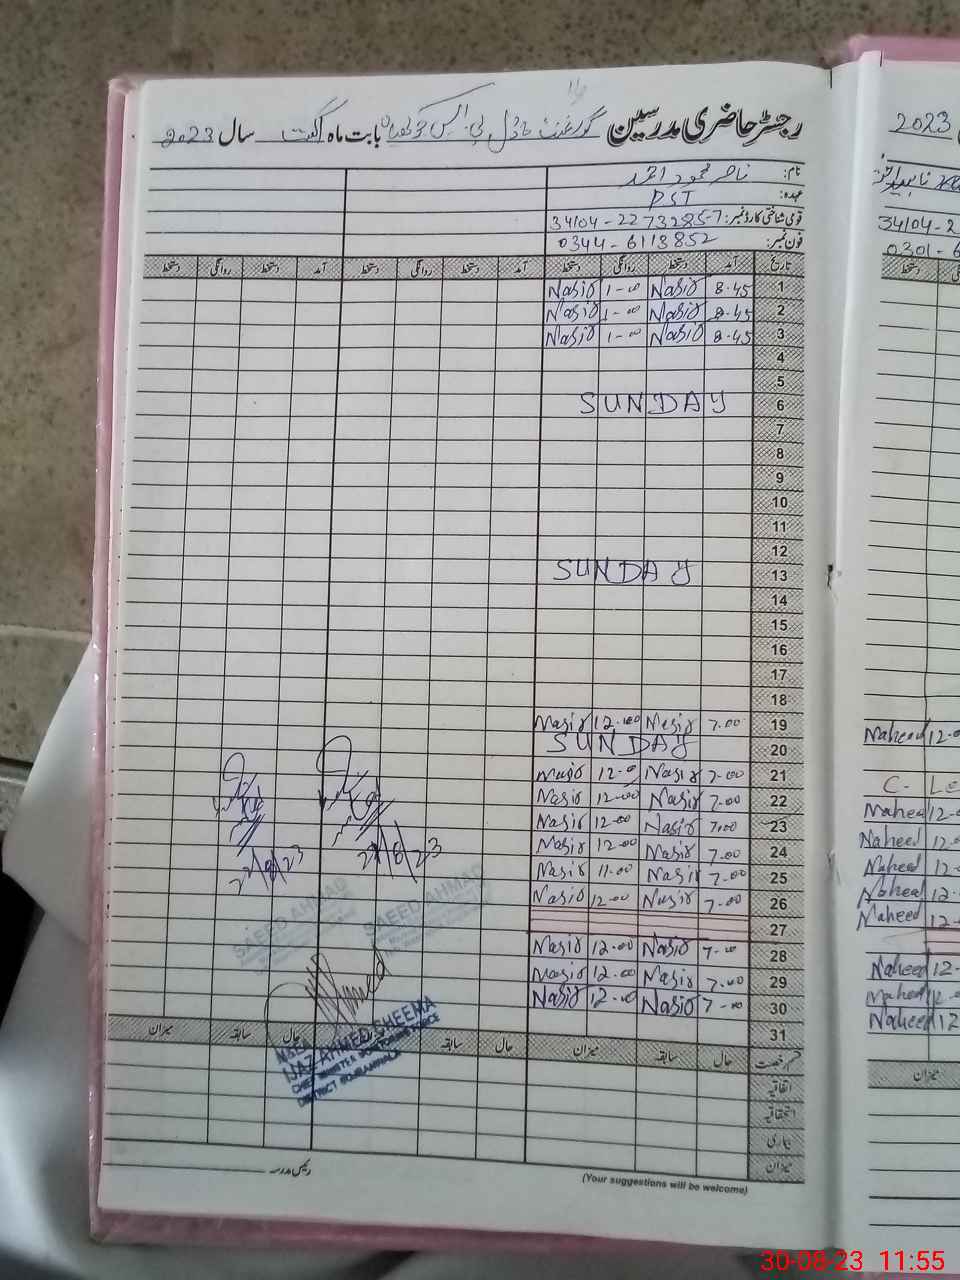 رجسٹر حاضری مدرسین گورنمنٹ ماڈل پی۔ایس بابت ماہ اگست سال 2023
نام: ناصر محمود احمد
عہدہ: PST
قومی شناختی کارڈ نمبر: 34104-2273285-7
فون نمبر: 0344-6113852
تاریخ آمد دستخط روانگی دستخط آمد دستخط روانگی دستخط آمد دستخط روانگی دستخط
1 8.45 Nasir 1-00 Nasir
2 8.45 Nasir 1-00 Nasir
3 8.45 Nasir 1-00 Nasir
4
5
6 SUNDAY
7
8
9
10
11
12
13 SUNDAY
14
15
16
17
18
19 7.00 Nasir 12.00 Nasir
20 SUNDAY
21 7-00 Nasir 12.0 Nasir
22 7-00 Nasir 12-00 Nasir
23 7.00 Nasir 12-00 Nasir
24 7-00 Nasir 12-00 Nasir
25 7-00 Nasir 11-00 Nasir
26 7-00 Nasir 12-00 Nasir
27
28 7-00 Nasir 12.00 Nasir
29 7.00 Nasir 12.00 Nasir
30 7-00 Nasir 12.00 Nasir
31
SAEED AHMAD
SAEED AHMAD
IJAZ AHMED CHEEMA
DISTRICT GUJRANWALA
قسم رخصت حال سابقہ میزان حال سابقہ حال سابقہ میزان
اتفاقیہ
استحقاقیہ
بیماری
میزان
رئیس مدرسہ
(Your suggestions will be welcome)
2023
34104-2
0301-6
دستخط
Naheed 12-0
C- Le
Naheed 12-0
Naheed 12-0
Naheed 12-
Naheed 12-
Naheed 12-0
Naheed 12-
Naheed 12-0
Naheed 12
میزان
30-08-23 11:55